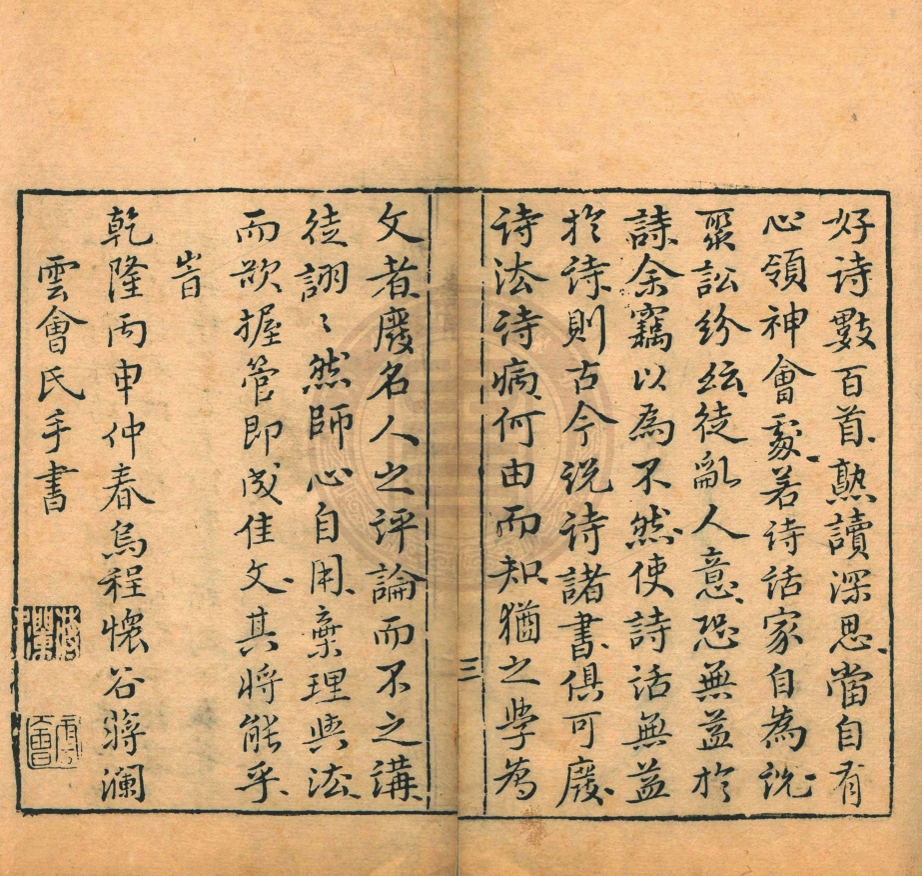 好诗數百首熟讀深思當自有
心領神會處若诗话家自為説
聚訟紛紜徒亂人意恐無益於
詩余竊以為不然使詩话無益
於诗則古今説诗諸書俱可廢
诗法诗病何由而知猶之學為
三
文者廢名人之评論而不之講
徒詡〻然師心自用棄理與法
而欲握管即成佳文其将能乎
旹
乾隆丙申仲春烏程懷谷蔣瀾
雲會氏手書
蔣瀾
雲會